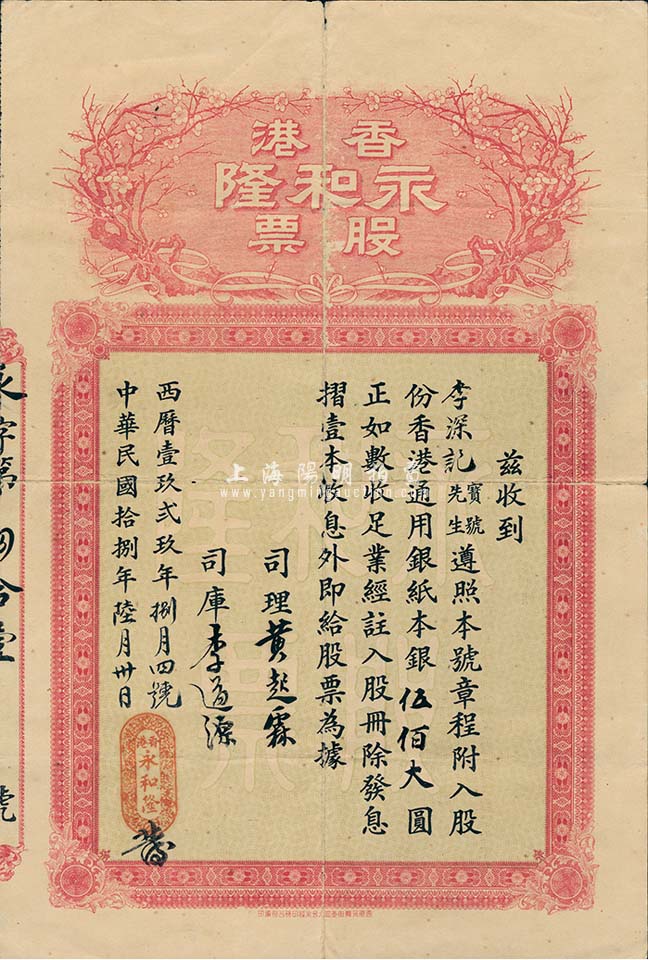 香港
永和隆
股票
茲收到
李深記寶號先生遵照本號章程附入股
份香港通用銀紙本銀伍佰大圓
正如數收足業經註入股冊除發息
摺壹本收息外即給股票為據
司理黄起霖
司庫李道源
西曆壹玖弍玖年捌月四號
中華民國拾捌年陸月卅日
香港
永和隆
永字第四拾壹號
上海陽明拍賣
www.yangmingauction.com